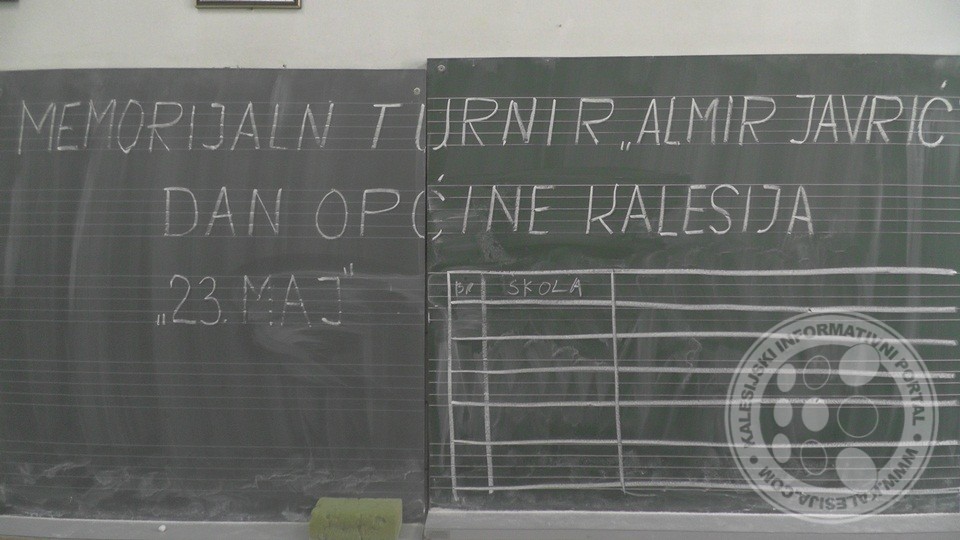 MEMORIJALN TURNIR „ALMIR JAVRIĆ
DAN OPĆINE KALESIJA
„23. MAJ"
BR SKOLA
KALESIJSKI INFORMATIVNI PORTAL • WWW.KALESIJA.COM •